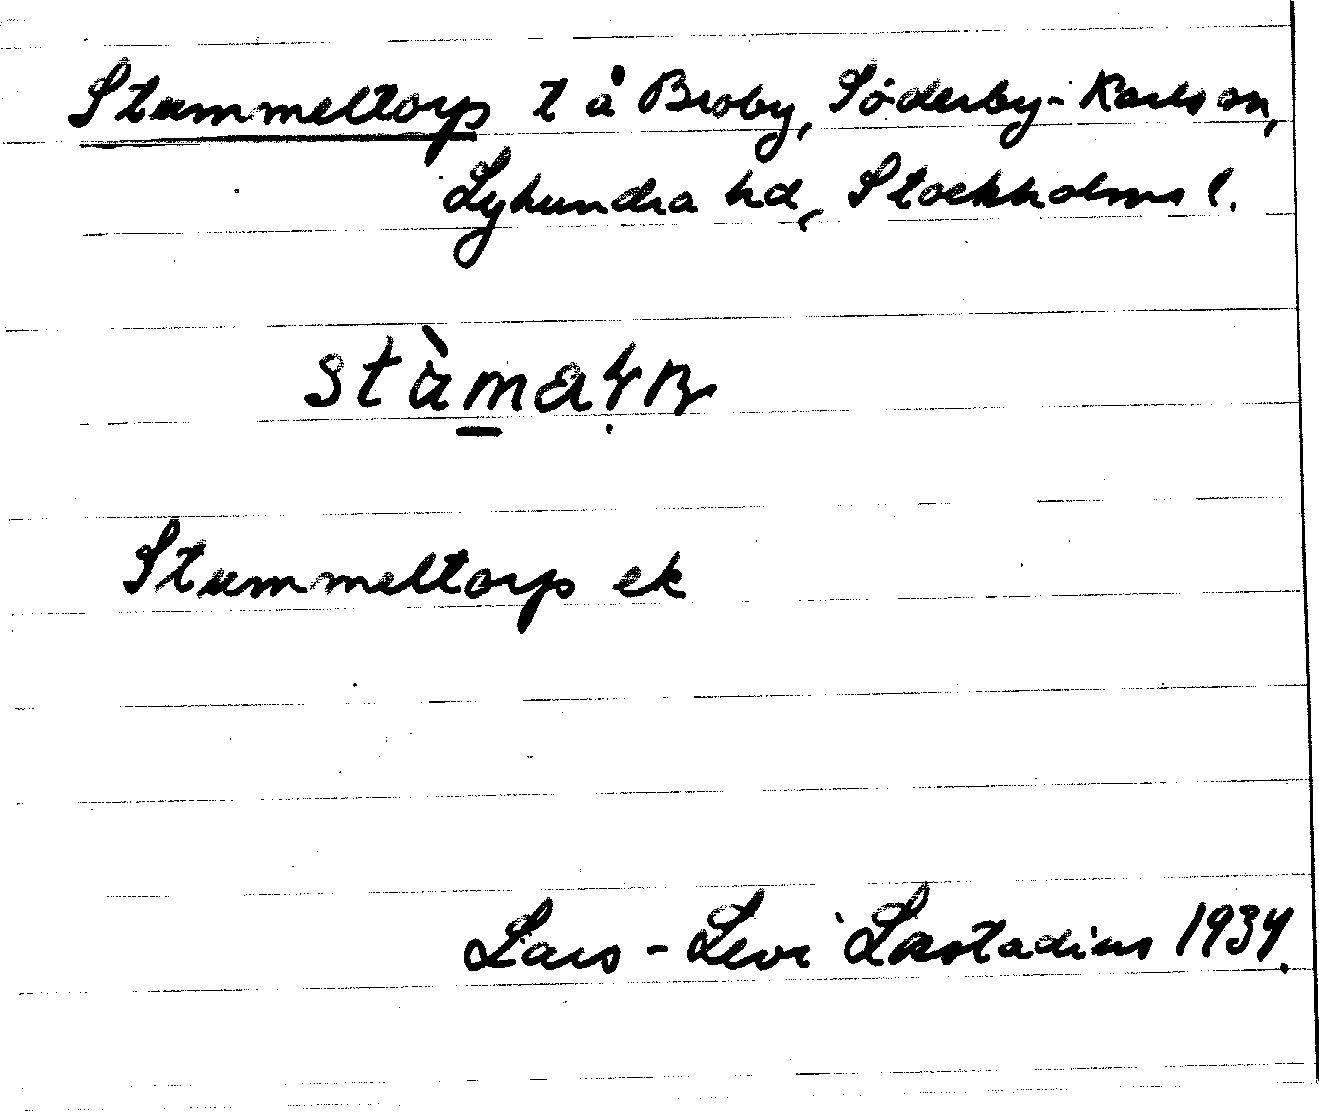 Stummeltorp t å Broby, Söderby-Karlsson,
Lyhundra hd, Stockholms l.
Stummeltorp ek
Lars-Levi Læstadius 1934.